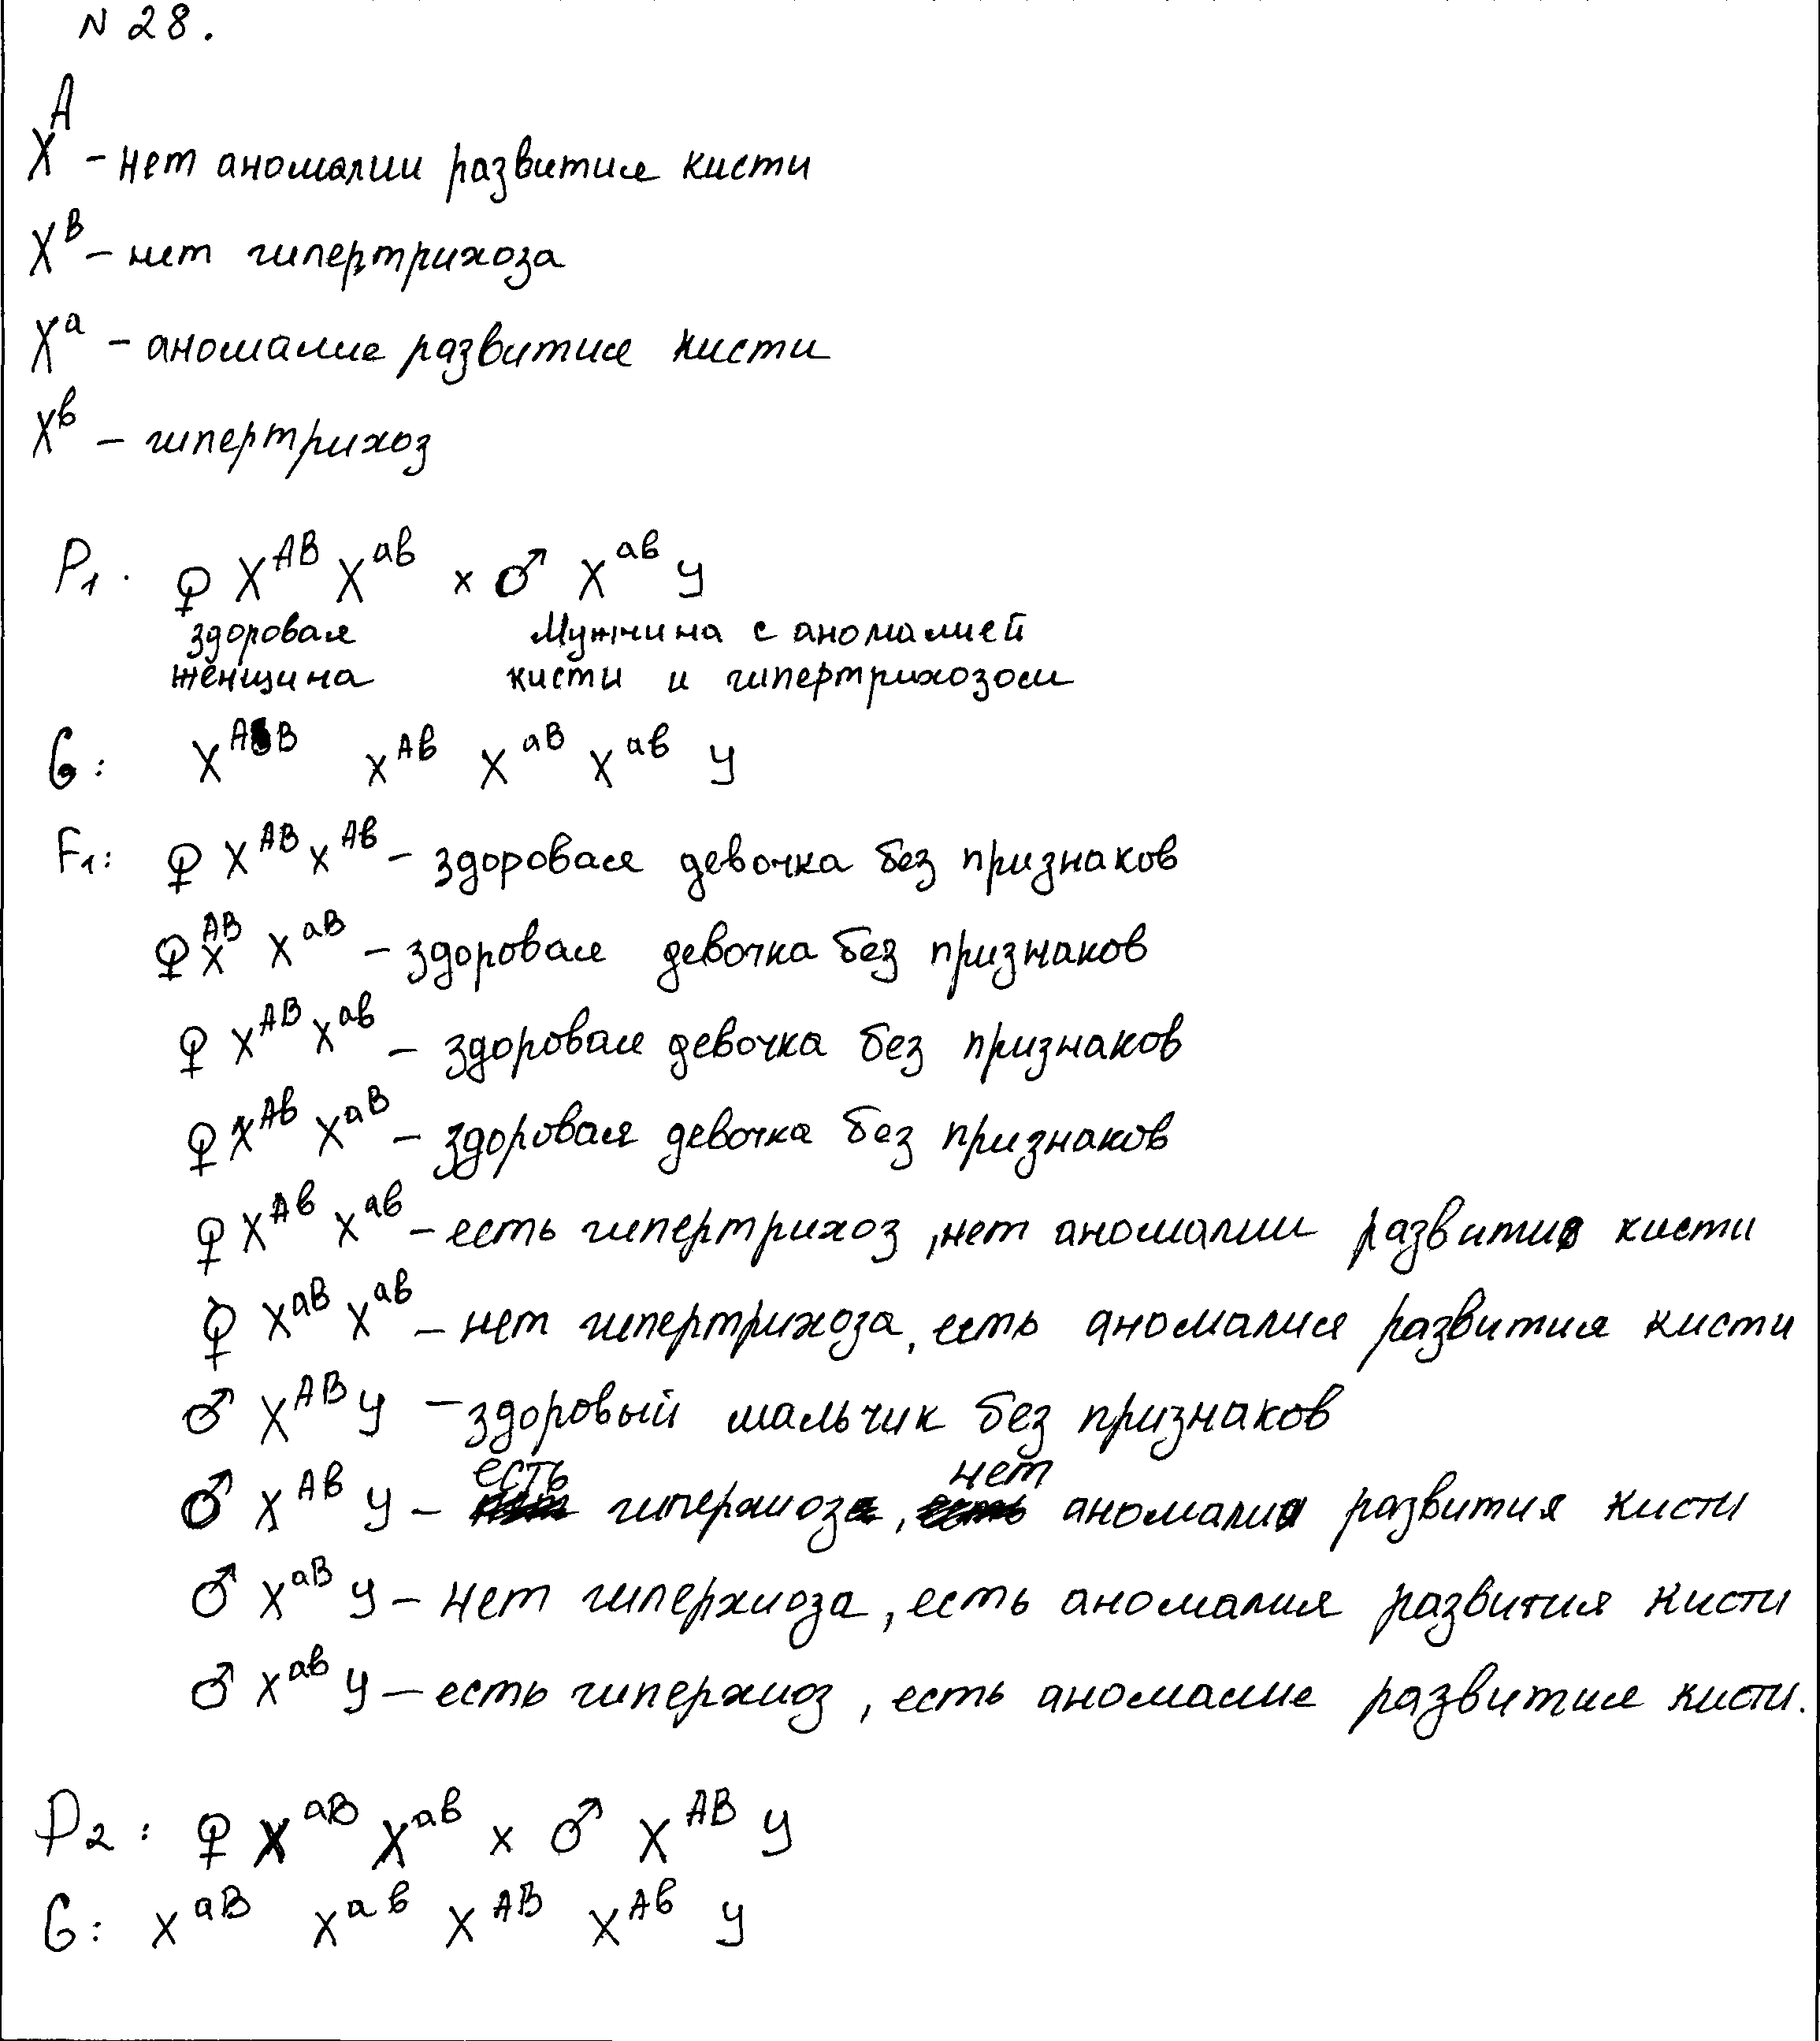 N 28.
X^A – нет аномалии развития кисти
X^B – нет гипертрихоза
X^a – аномалия развития кисти
X^в – гипертрихоз
P1. ♀ X^AB X^aв × ♂ X^aв У
здоровая Мужчина с аномалией
женщина кисти и гипертрихозом
G: X^AB X^Aв X^aB X^aв У
F1: ♀ X^AB X^Aв – здоровая девочка без признаков
♀ X^AB X^aB – здоровая девочка без признаков
♀ X^AB X^aв – здоровая девочка без признаков
♀ X^Aв X^aB – здоровая девочка без признаков
♀ X^Aв X^aв – есть гипертрихоз, нет аномалии развития кисти
♀ X^aB X^aв – нет гипертрихоза, есть аномалия развития кисти
♂ X^AB У – здоровый мальчик без признаков
♂ X^Aв У – есть гиперхиоз, нет аномалии развития кисти
♂ X^aB У – нет гиперхиоза, есть аномалия развития кисти
♂ X^aв У – есть гиперхиоз, есть аномалия развития кисти.
P2: ♀ X^aB X^aв × ♂ X^AB У
G: X^aB X^aв X^AB X^Aв У